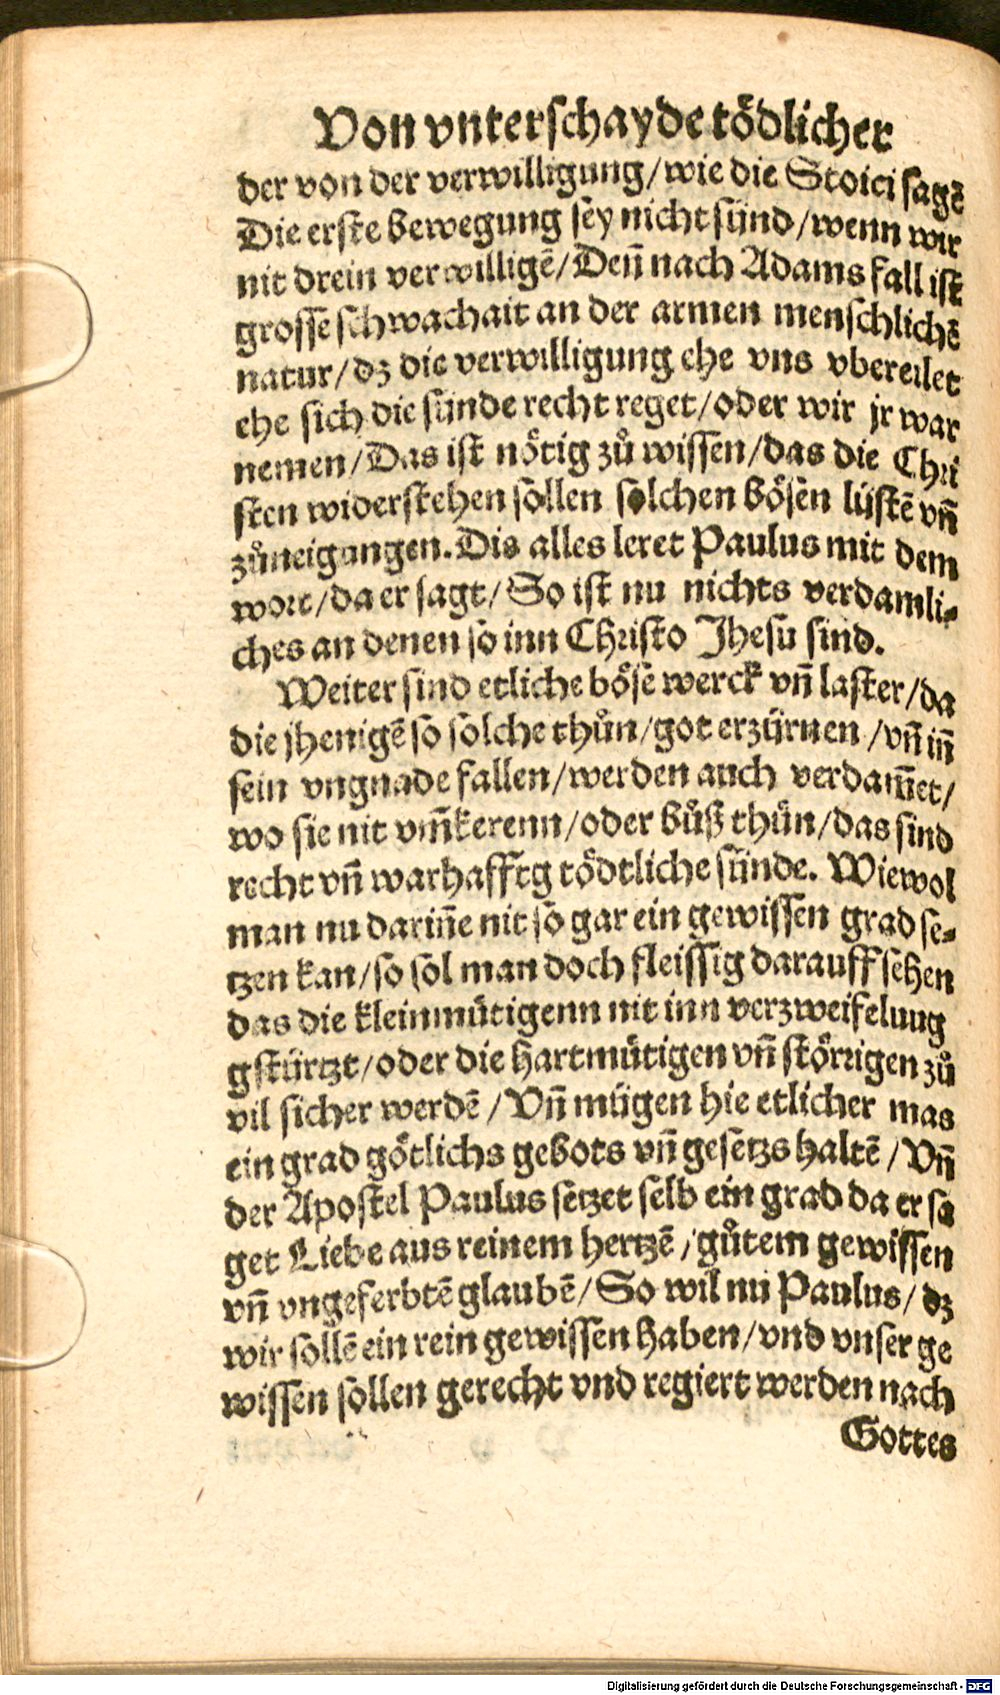 Von vnterschayde tödlicher
der von der verwilligung/wie die Stoici sagẽ
Die erste bewegung sey nicht sünd/wenn wir
nit drein verwilligẽ/Deñ nach Adams fall ist
grosse schwachait an der armen menschlichẽ
natur/dz die verwilligung ehe vns vbereilet
ehe sich die sünde recht reget/oder wir jr war
nemen/Das ist nötig zů wissen/das die Chri
sten widerstehen sollen solchen bösen lüstẽ vñ
zůneigungen. Dis alles leret Paulus mit dem
wort/da er sagt/So ist nu nichts verdamli⸗
ches an denen so inn Christo Jhesu sind.
Weiter sind etliche böse werck vñ laster/da
die jhenigẽ so solche thůn/got erzürnen/vñ iñ
sein vngnade fallen/werden auch verdam̃et/
wo sie nit vm̃kerenn/oder bůß thůn/das sind
recht vñ warhafftg tödtliche sünde. Wiewol
man nu dariñe nit so gar ein gewissen grad se⸗
tzen kan/so sol man doch fleissig darauff sehen
das die kleinmütigenn nit inn verzweifelung
gstürtzt/oder die hartmütigen vñ störrigen zů
vil sicher werdẽ/Vñ mügen hie etlicher mas
ein grad götlichs gebots vñ gesetzs haltẽ/Vñ
der Apostel Paulus setzet selb ein grad da er sa
get Liebe aus reinem hertzẽ/gůtem gewissen
vñ vngeferbtẽ glaubẽ/So wil nu Paulus/dz
wir sollẽ ein rein gewissen haben/vnd vnser ge
wissen sollen gerecht vnd regiert werden nach
Gottes
Digitalisierung gefördert durch die Deutsche Forschungsgemeinschaft - DFG